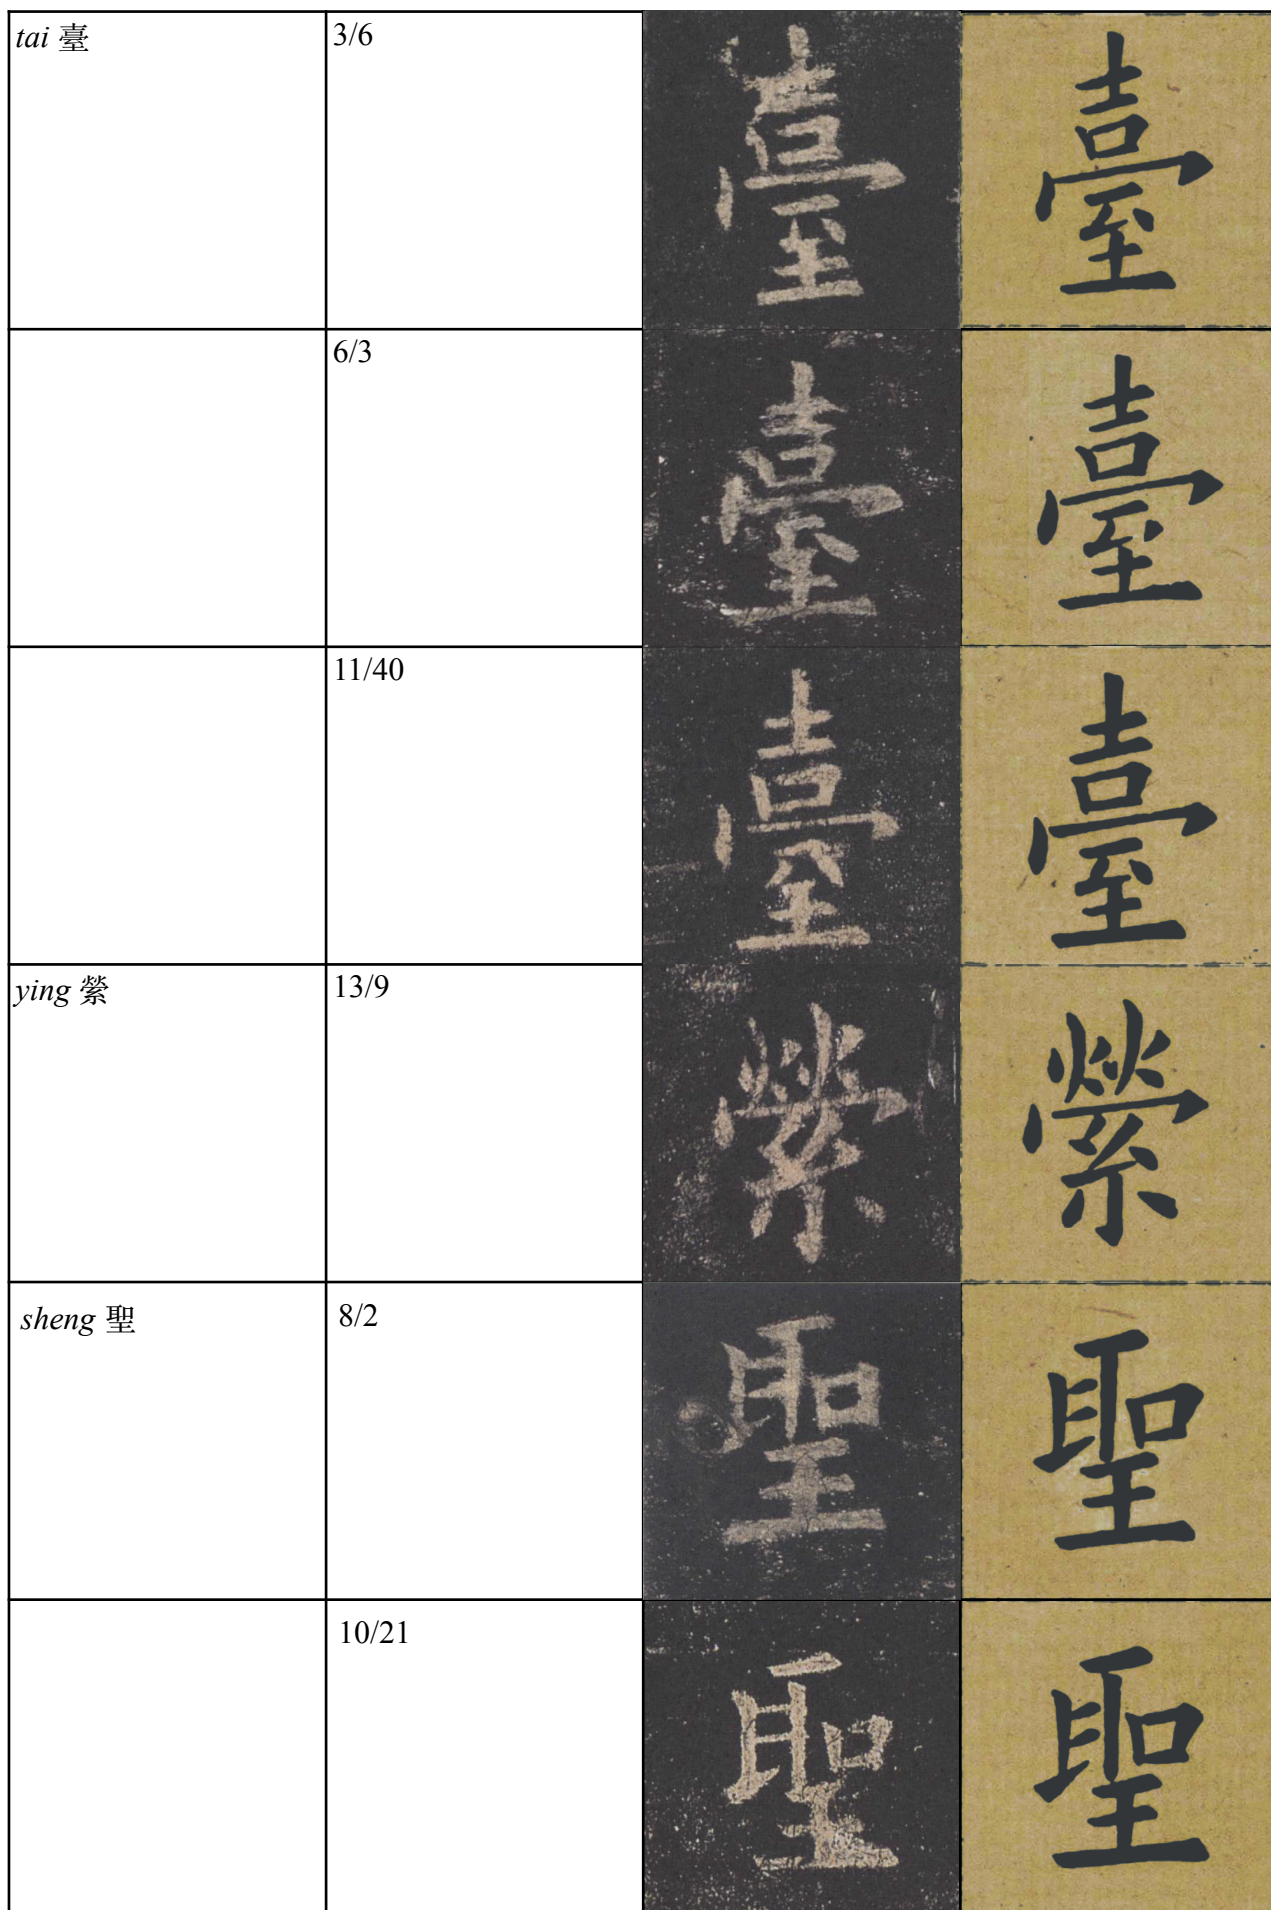 tai 臺 3/6 臺 臺
6/3 臺 臺
11/40 臺 臺
ying 縈 13/9 縈 縈
sheng 聖 8/2 聖 聖
10/21 聖 聖